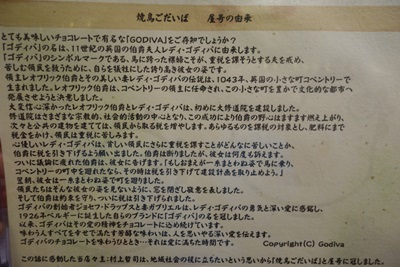 焼鳥ごだいば　屋号の由来
とても美味しいチョコレートで有名な「GODIVA」をご存知でしょうか?
「ゴディバ」の名は、11世紀の英国の伯爵夫人レディ・ゴディバに由来します。
「ゴディバ」のシンボルマークである、馬に跨った裸婦こそが、重税を課そうとする夫を戒め、
苦しむ領民を救うために、自らを犠牲にした誇り高き彼女の姿です。
領主レオフリック伯爵とその美しい妻レディ・ゴディバの伝説は、1043年、英国の小さな町コベントリーで
生まれました。レオフリック伯爵は、コベントリーの領主に任命され、この小さな町を豊かで文化的な都市へ
発展させようと決意しました。
大変信心深かったレオフリック伯爵とレディ・ゴディバは、初めに大修道院を建設しました。
修道院はさまざまな宗教的、社会的活動の中心となり、この成功により伯爵の野心はますます燃え上がり、
次々と公共の建物を建てては、領民から取る税を増やします。あらゆるものを課税の対象とし、肥料にまで
税金をかけ、領民は重税に苦しみます。
心優しいレディ・ゴディバは、貧しい領民にさらに重税を課すことがどんなに苦しいことか、
伯爵に税を引き下げるよう願い出ました。伯爵は断りましたが、彼女は何度も訴えます。
ついに議論に疲れた伯爵は、彼女に告げます。「もしおまえが一糸まとわぬ姿で馬に乗り、
コベントリーの町中を廻れたなら、その時は税を引き下げて建設計画を取り止めよう。」
翌朝、彼女は一糸まとわぬ姿で町を廻りました。
領民たちはそんな彼女の姿を見ないように、窓を閉ざし敬意を表しました。
そして伯爵は約束を守り、ついに税は引き下げられました。
ゴディバの創始者ジョセフ・ドラップスと妻ガブリエルは、レディ・ゴディバの勇気と深い愛に感銘し、
1926年ベルギーに誕生した自らのブランドに「ゴディバ」の名を冠しました。
以来、ゴディバはその愛の精神をチョコレートに込め続けています。
味わう人すべてを幸せで満たす芳醇な味わいは、人を思いやる深い愛を伝えます。
ゴディバのチョコレートを味わうひととき…それは愛に満ちた時間です。
Copyright(C) Godiva
この話に感動した当店々主:村上誓司は、地域社会の役に立ちたいという思いから「ごだいば」と屋号に冠しました。